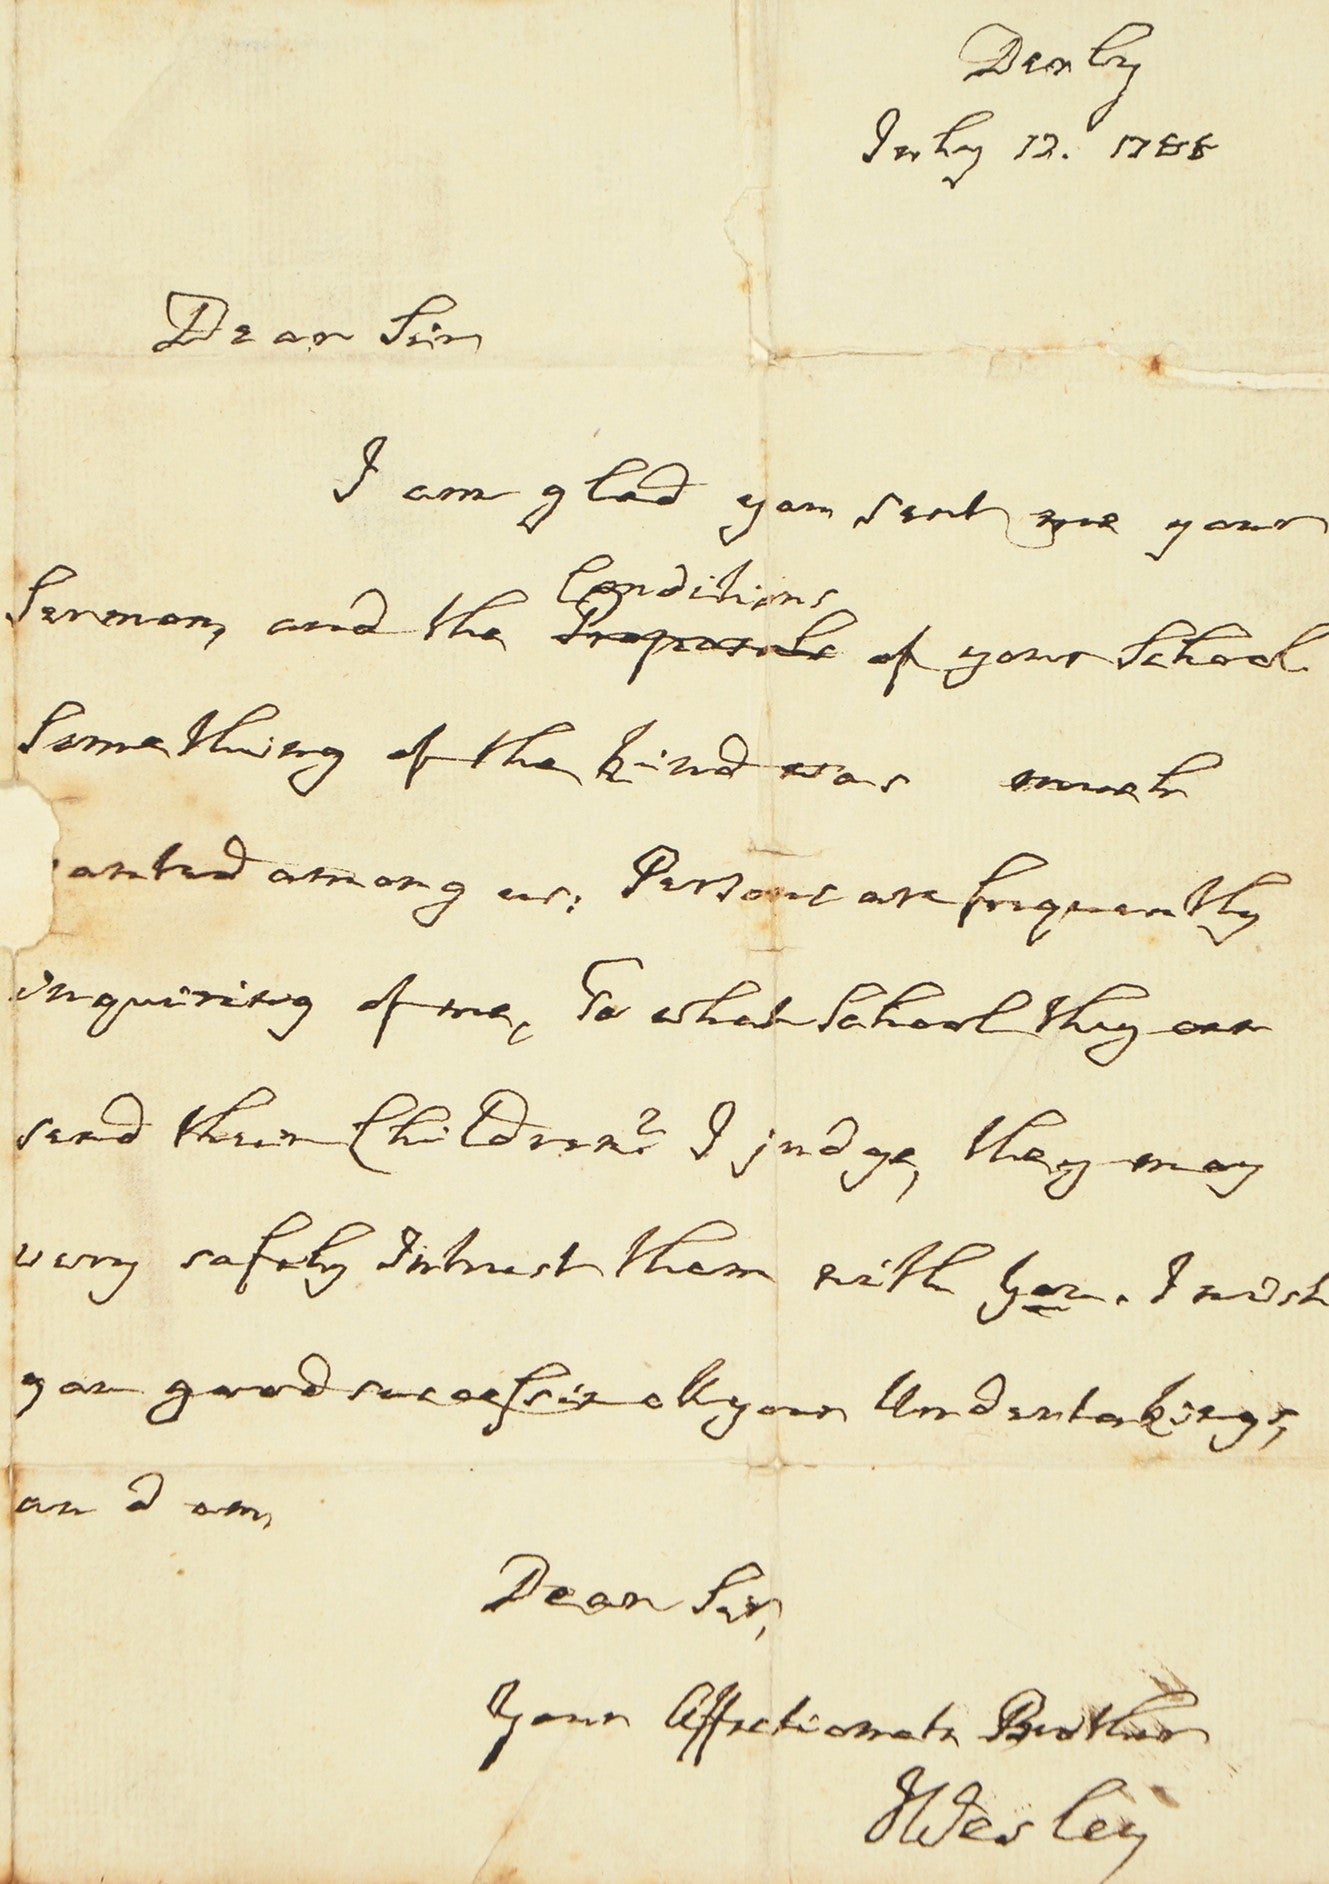 Derby
July 12. 1788
Dear Sir
I am glad you sent me your
Conditions
Sermon, and the Proposals of your School
Something of the kind was much
wanted among us: Persons are frequently
inquiring of me, To what School they can
send their Children? I judge, they may
very safely Intrust them with You. I wish
you good success in all your Undertakings,
and am,
Dear Sir,
Your Affectionate Brother
JWesley